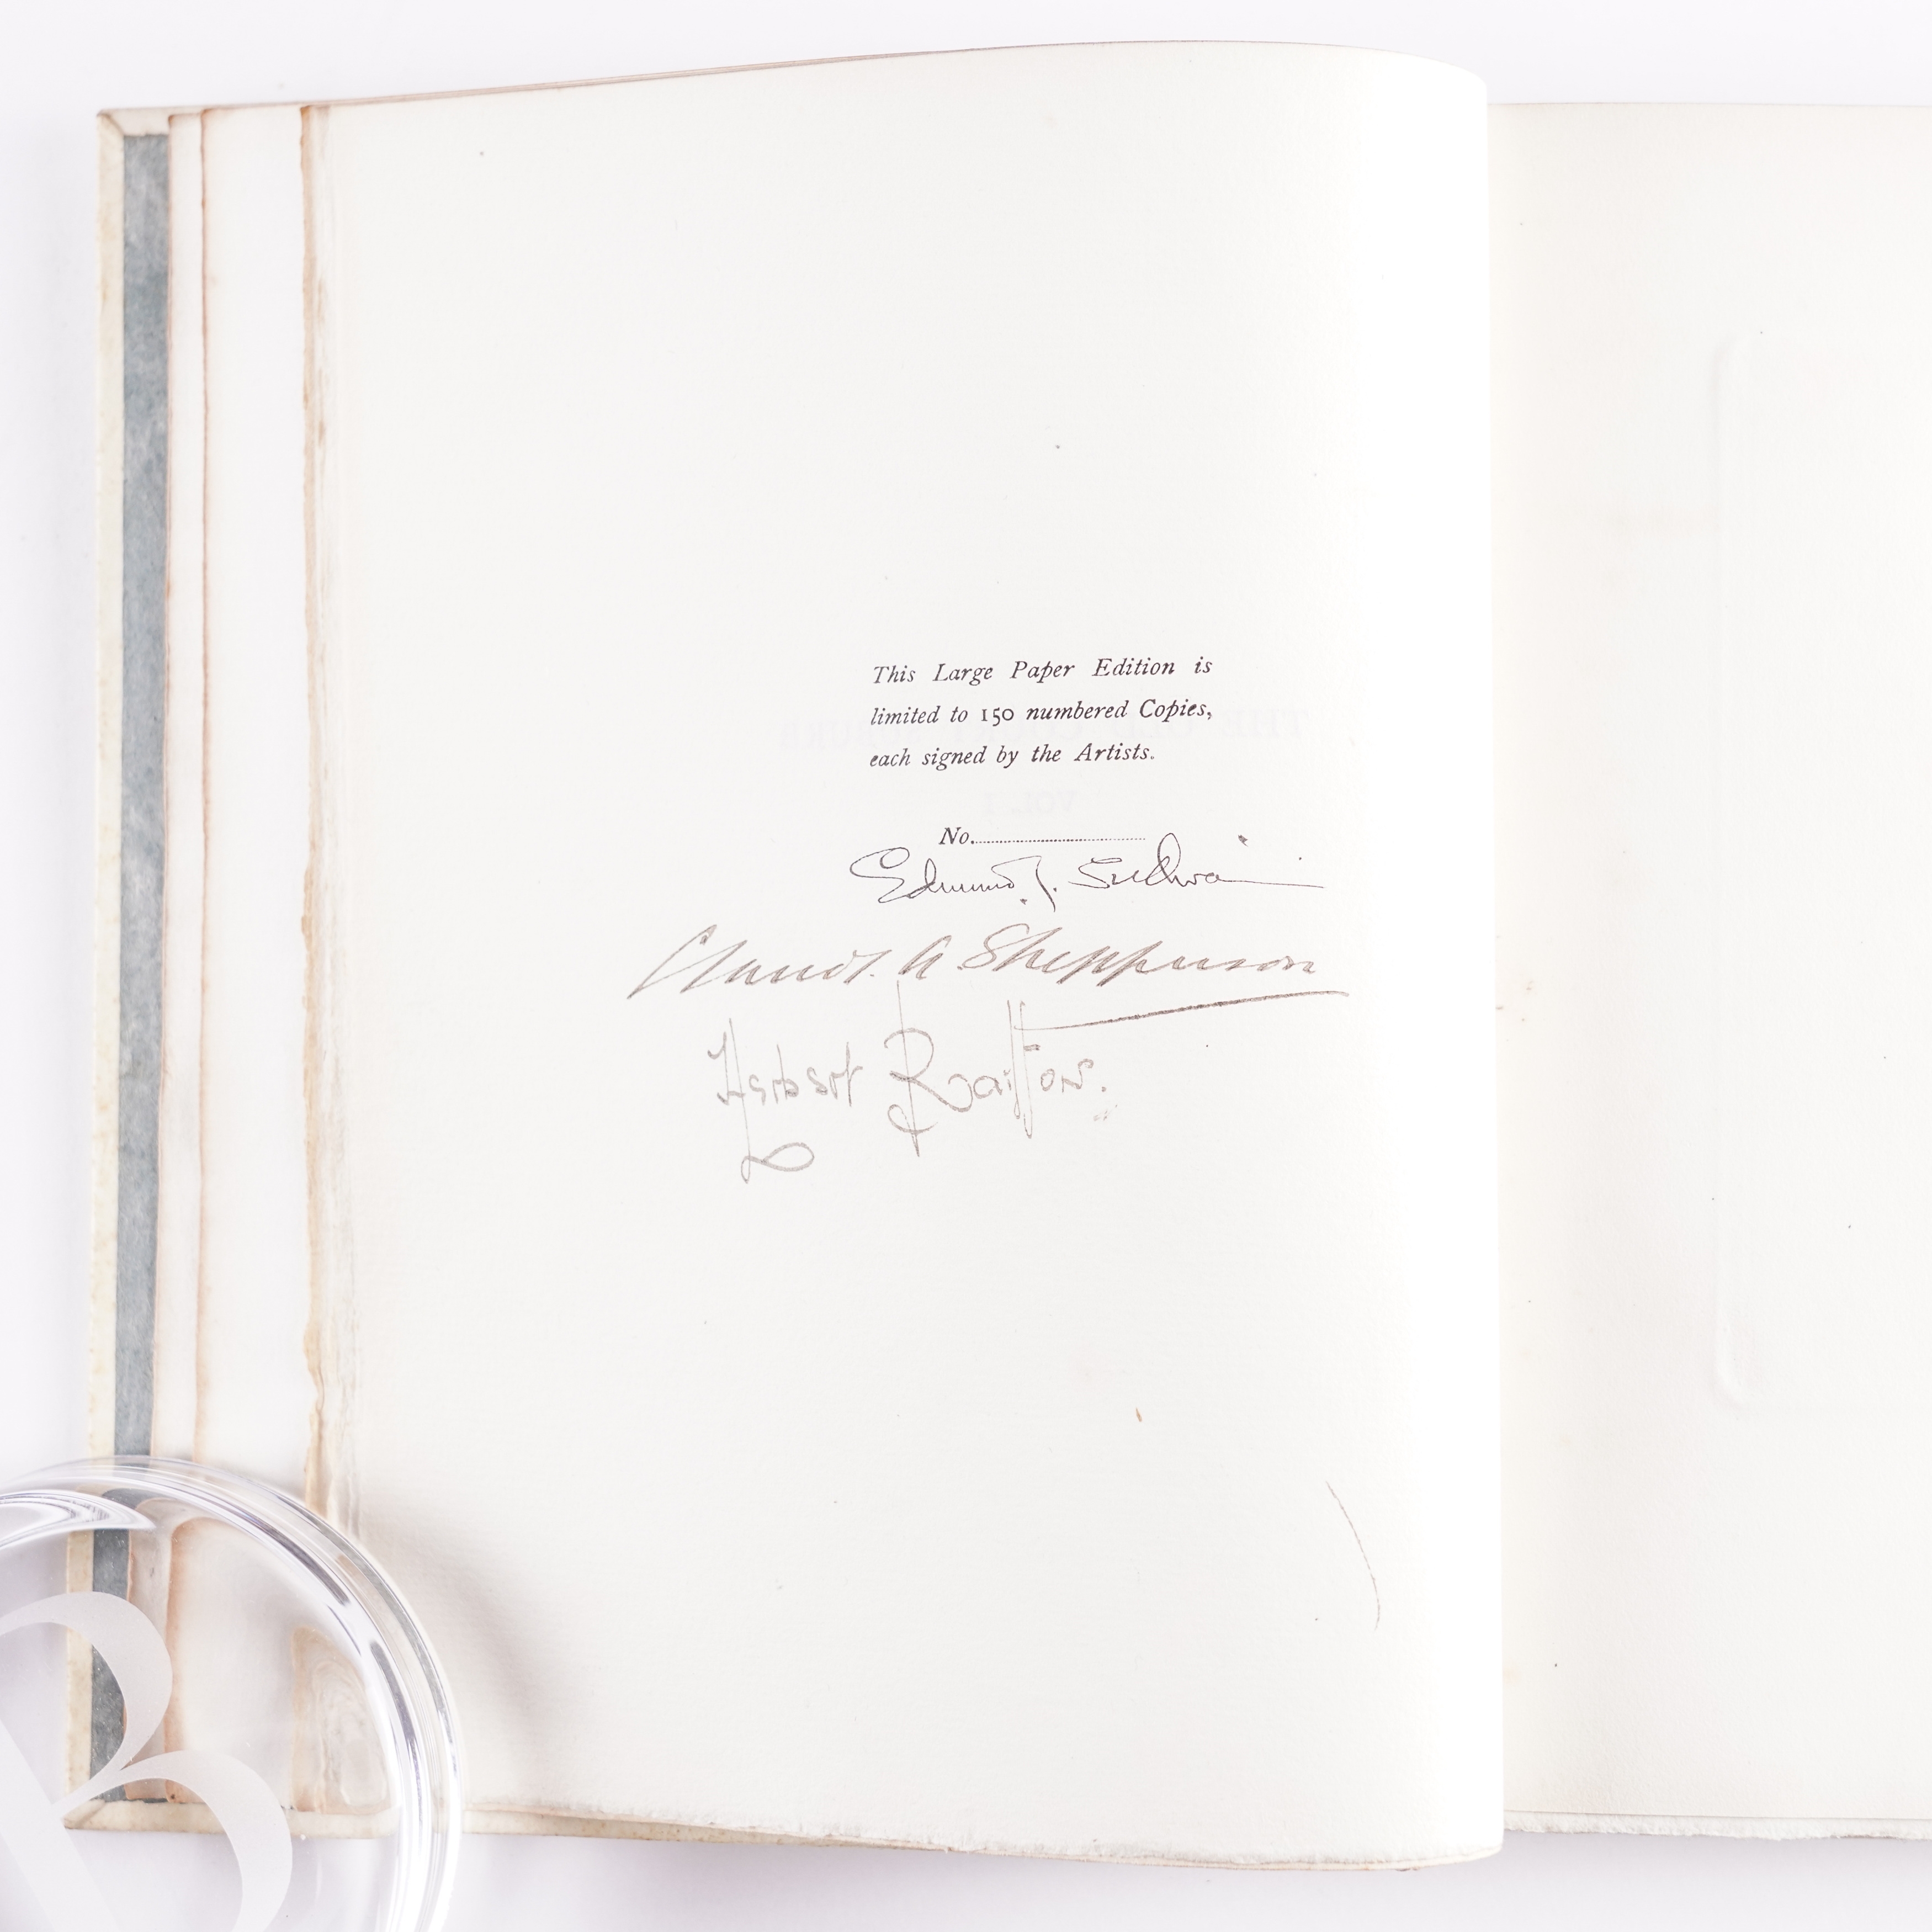 This Large Paper Edition is
limited to 150 numbered Copies,
each signed by the Artists.
No.
Edmund J. Sullivan
Claude A. Shepperson
Herbert Railton.
B